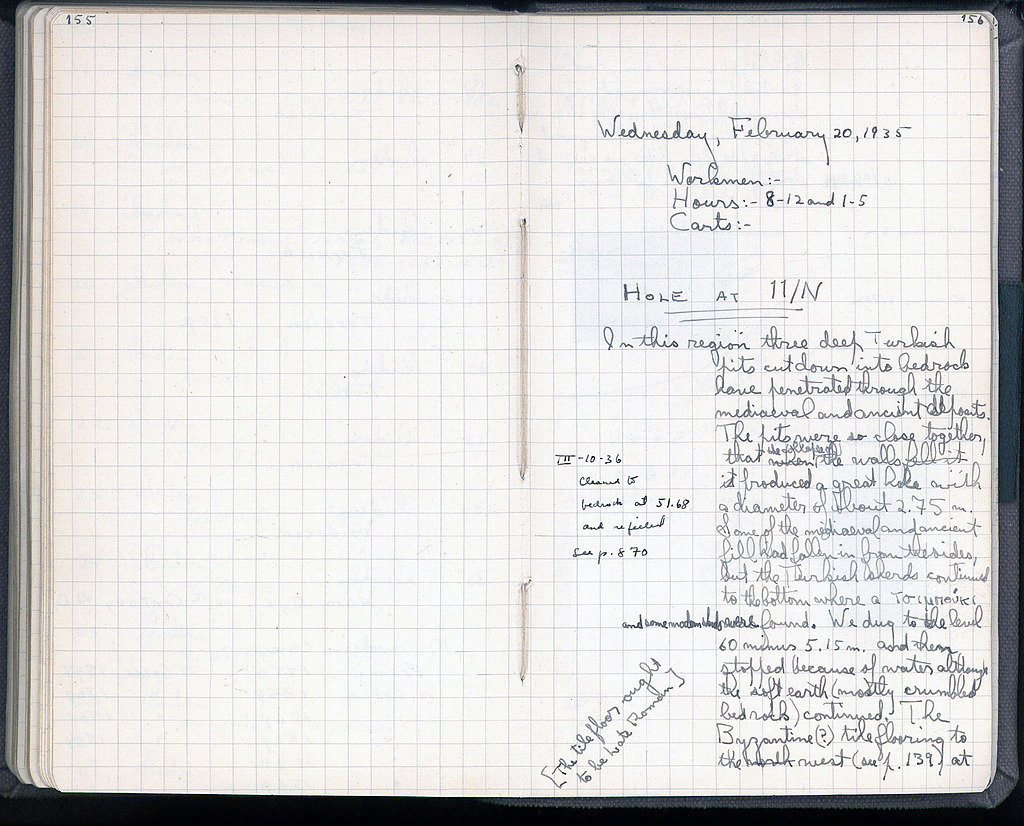 155
156
Wednesday, February 20, 1935
Workmen:-
Hours:- 8-12 and 1-5
Carts:-
HOLE AT 11/N
In this region three deep Turkish
pits cut down into bedrock
have penetrated through the
mediaeval and ancient deposits.
The pits were so close together,
that when the walls fell it
it produced a great hole with
a diameter of about 2.75 m.
Some of the mediaeval and ancient
fill had fallen in from the sides,
but the Turkish sherds continued
to the bottom where a τσιμπούκι
and some modern sherds were found. We dug to the level
60 minus 5.15 m. and then
stopped because of water although
the soft earth (mostly crumbled
bedrock) continued. The
Byzantine (?) tile flooring to
the north west (see p. 139) at
III-10-36
Cleaned to
bedrock at 51.68
and refilled
See p. 870
[The tile floor ought
to be Late Roman]